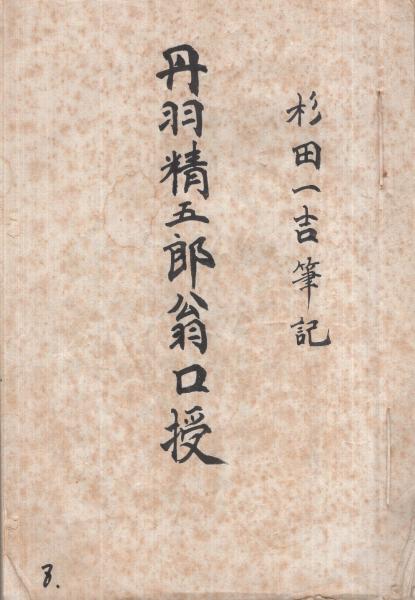 杉田一吉筆記
丹羽精五郎翁口授